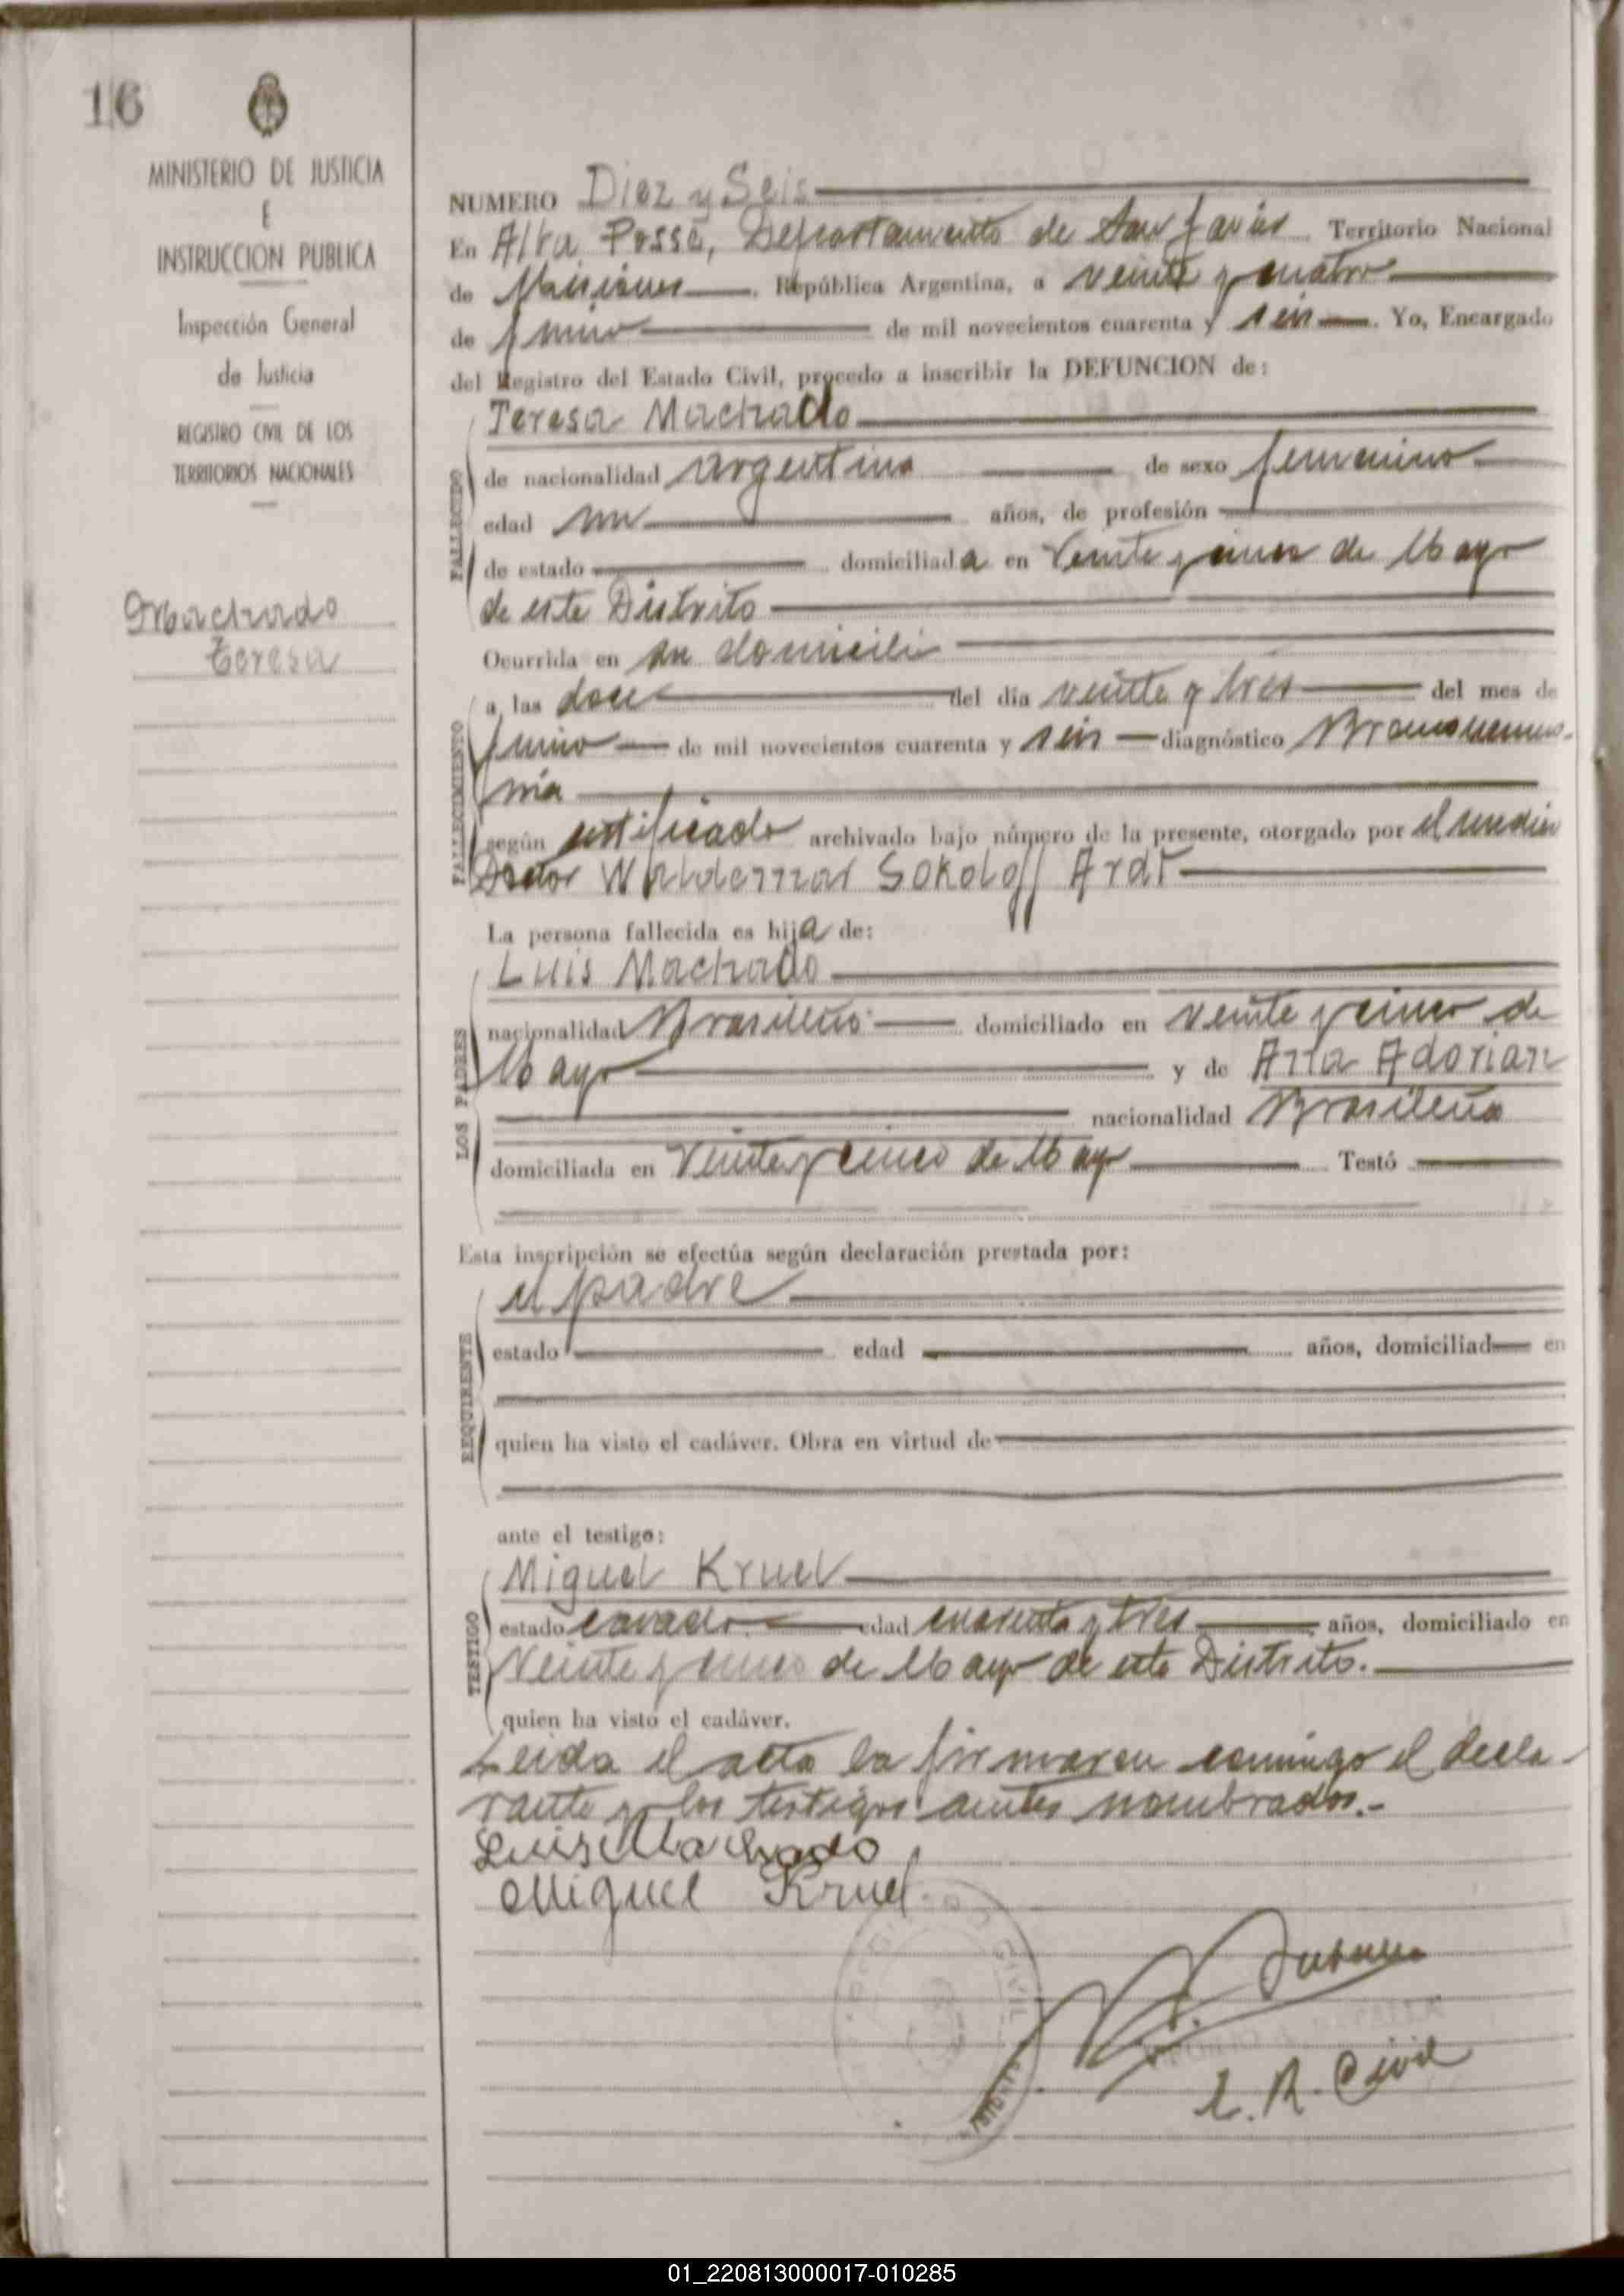 16
MINISTERIO DE JUSTICIA
E
INSTRUCCION PUBLICA
Inspección General
de Justicia
REGISTRO CIVIL DE LOS
TERRITORIOS NACIONALES
Machado
Teresa
NUMERO Diez y Seis
En Alba Posse, Departamento de San Javier Territorio Nacional
de Misiones República Argentina, a veinte y cuatro
de Junio de mil novecientos cuarenta y seis. Yo, Encargado
del Registro del Estado Civil, procedo a inscribir la DEFUNCION de:
FALLECIDO
Teresa Machado
de nacionalidad argentina de sexo femenino
edad un años, de profesión
de estado domiciliada en Veinte y cinco de Mayo
de este Distrito
Ocurrida en su domicili
FALLECIMIENTO
a las doce del día veinte y tres del mes de
Junio de mil novecientos cuarenta y seis diagnóstico
según certificado archivado bajo número de la presente, otorgado por el medico
Doctor Waldemar Sokoloff Ardt
La persona fallecida es hija de:
LOS PADRES
Luis Machado
nacionalidad Brasileño domiciliado en veinte y cinco de
Mayo y de Ana Adorian
nacionalidad Brasileña
domiciliada en Veinte y cinco de Mayo Testó
Esta inscripción se efectúa según declaración prestada por:
REQUIRENTE
el padre
estado edad años, domiciliad en
quien ha visto el cadáver. Obra en virtud de
ante el testigo:
TESTIGO
Miguel Kruel
estado casado edad cuarenta y tres años, domiciliado en
Veinte y cinco de Mayo de este Distrito.
quien ha visto el cadáver.
Leida el acta la firmaron conmigo el decla-
rante y los testigos antes nombrados.-
Luis Machado
Miguel Kruel
CIVIL
E. R. Civil
01_220813000017-010285